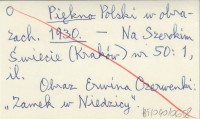 o Piękno Polski w obra-
zach. 1930. – Na Szerokim
Świecie (Kraków) nr 50: 1,
il.
Obraz Erwina Czerwenki:
„Zamek w Niedzicy".